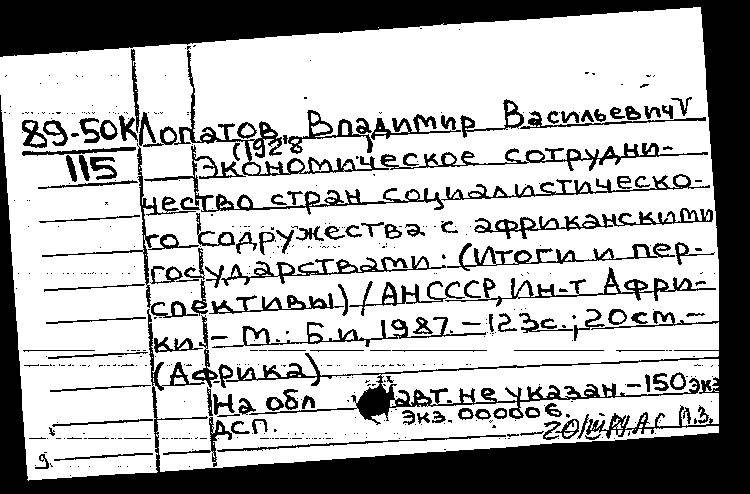 89-50К Лопатов, Владимир Васильевич
115 (1928 )
Экономическое сотрудни-
чество стран социалистическо-
го содружества с африканскими
государствами: (Итоги и пер-
спективы) / АН СССР, Ин-т Афри-
ки. - М.: Б.и., 1987. - 123с.; 20см. -
(Африка).
На обл авт. не указан. - 150 экз
ДСП. экз. 000006.
П.З.
9.